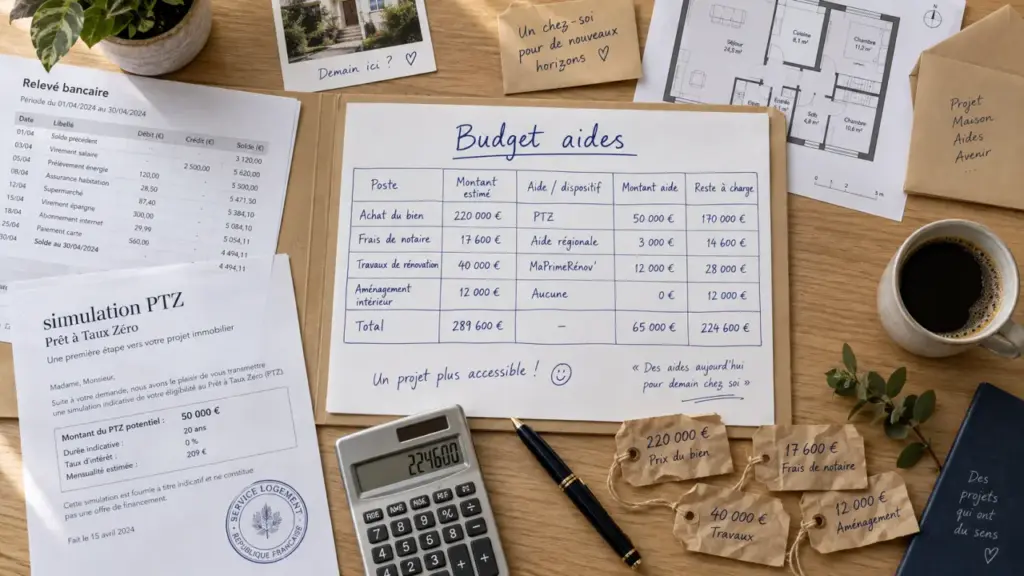 Relevé bancaire
Période du 01/04/2024 au 30/04/2024
Date Libellé Débit (€) Crédit (€) Solde (€)
01/04 Solde précédent 3 120,00
03/04 Virement salaire 2 500,00 5 620,00
05/04 Prélèvement énergie 120,00 5 500,00
08/04 Assurance habitation 28,50 5 471,50
12/04 Supermarché 87,40 5 384,10
15/04 Virement épargne 300,00 5 084,10
18/04 Abonnement internet 29,99 5 054,11
25/04 Paiement carte 560,00 4 494,11
30/04 Solde au 30/04/2024 4 494,11
Demain ici ? ♡
Un chez-soi
pour de nouveaux
horizons ! ♡
Séjour
Cuisine
8,1 m²
Chambre
11,2 m²
Entrée
Sdb
4,8 m²
Chambre
10,6 m²
Projet
Maison
Aides
Avenir ...
Budget aides
Poste Montant estimé Aide / dispositif Montant aide Reste à charge
Achat du bien 220 000 € PTZ 50 000 € 170 000 €
Frais de notaire 17 600 € Aide régionale 3 000 € 14 600 €
Travaux de rénovation 40 000 € MaPrimeRénov' 12 000 € 28 000 €
Aménagement intérieur 12 000 € Aucune 0 € 12 000 €
Total 289 600 € – 65 000 € 224 600 €
Un projet plus accessible ! ☺
« Des aides aujourd'hui
pour demain chez soi »
simulation PTZ
Prêt à Taux Zéro
Une première étape vers votre projet immobilier
Madame, Monsieur,
Suite à votre demande, nous avons le plaisir de vous transmettre
une simulation indicative de votre éligibilité au Prêt à Taux Zéro (PTZ).
Montant du PTZ potentiel : 50 000 €
Durée indicative : 20 ans
Taux d'intérêt : 0 %
Mensualité estimée : 209 €
Cette simulation est fournie à titre indicatif et ne constitue
pas une offre de financement.
Fait le 15 avril 2024
SERVICE LOGEMENT
RÉPUBLIQUE FRANÇAISE
224600
220 000 €
Prix du bien
17 600 €
Frais de notaire
40 000 €
Travaux
12 000 €
Aménagement
Des
projets
qui ont
du sens
♡